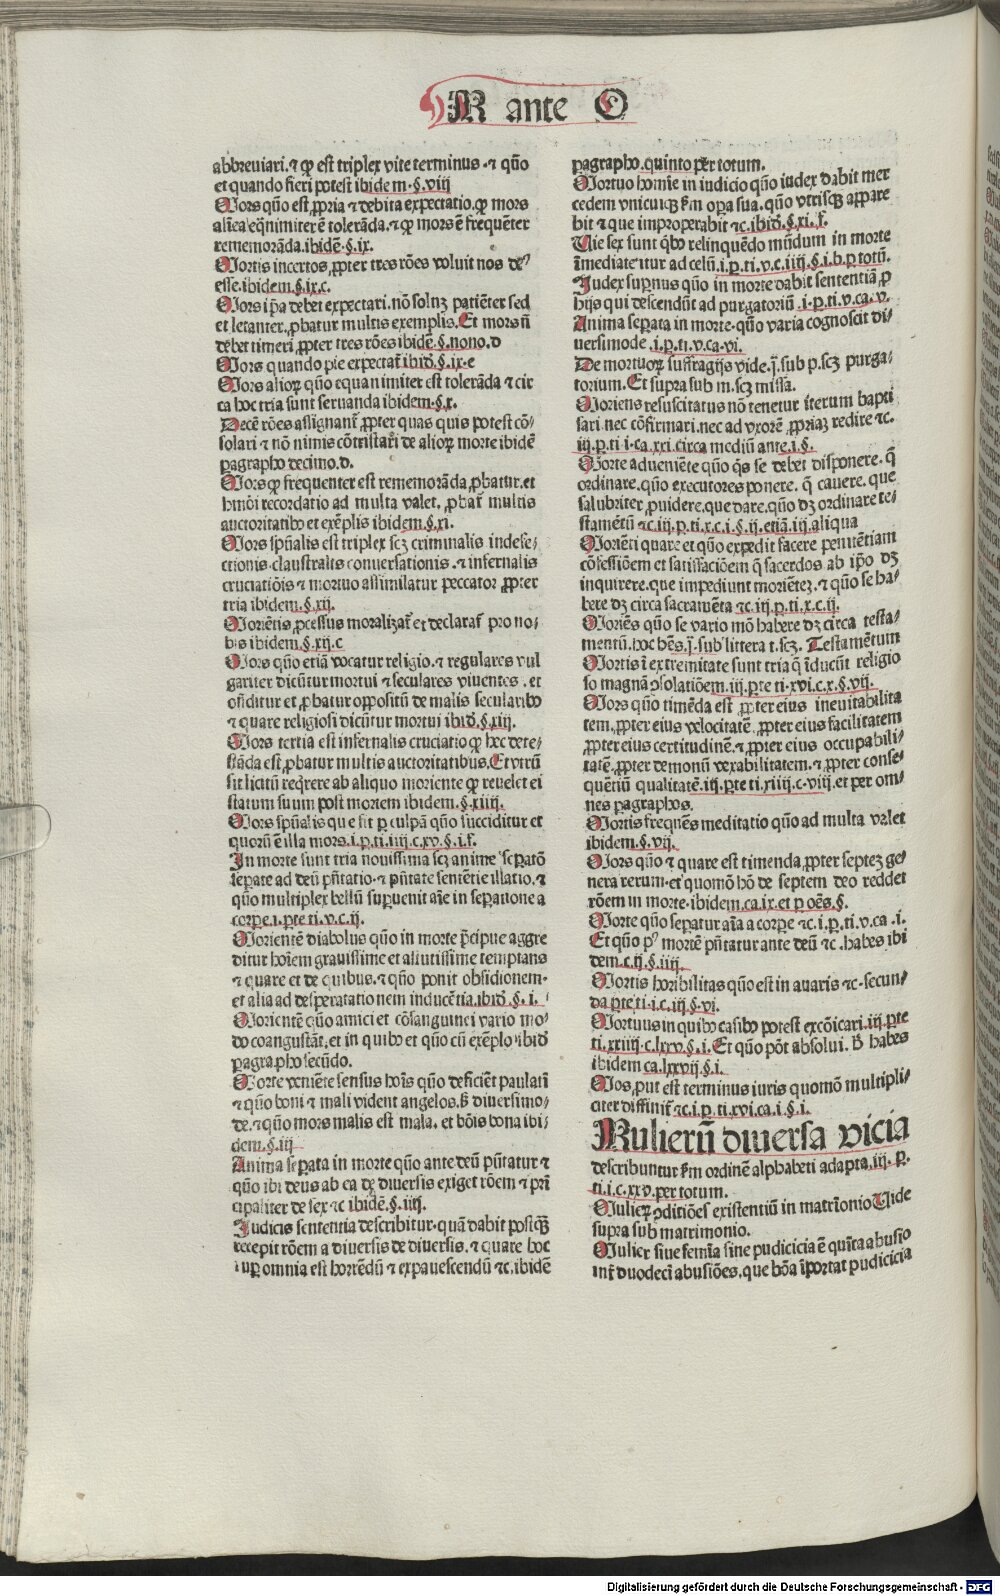 M ante O
abbreviari. ⁊ ꝙ est triplex vite terminus. ⁊ qño
et quando fieri potest ibidem. §. viij
Mors qño est ꝓpria ⁊ debita expectatio. ꝙ mors
aliea eq̃nimiter ẽ tolerãda. ⁊ ꝙ mors ẽ frequẽter
rememorãda. ibidẽ. §. ix.
Mortis incertos, ꝓpter tres rões voluit nos de⸗
esse. ibidem. §. ix. c.
Mors ip̃a debet expectari. nõ solũ patiẽter sed
et letanter, ꝓbatur multis exemplis. Et mors ñ
debet timeri ꝓpter tres rões ibidẽ. §. nono. d
Mors quando pie expectat̃ ibid̃. §. ix. e
Mors alioꝝ qño equanimiter est tolerãda ⁊ cir
ca hoc tria sunt seruanda ibidem. §. x.
Decẽ rões assignant̃ ꝓpter quas quis potest cõ⸗
solari ⁊ nõ nimis cõtristari de alioꝝ morte ibidẽ
paragrapho decimo. d.
Mors ꝙ frequenter est rememorãda ꝓbatur. et
hmõi recordatio ad multa valet, ꝓbat̃ multis
auctoritatibꝰ et exẽplis ibidem. §. xi.
Mors spũalis est triplex scꝫ criminalis indefe⸗
ctionis. claustralis conuersationis. ⁊ infernalis
cruciatiõis ⁊ mortuo assimilatur peccator ꝓpter
tria ibidem. §. xij.
Moriẽtis ꝓcessus moralizat̃ et declarat̃ pro no⸗
bis ibidem. §. xij. c
Mors qño etiã vocatur religio. ⁊ regulares vul
gariter dicũtur mortui ⁊ seculares viuentes. et
oñditur et ꝓbatur oppositũ de malis secularibꝰ
⁊ quare religiosi dicũtur mortui ibid̃. §. xiij.
Mors tertia est infernalis cruciatio ꝙ hec dete⸗
stãda est ꝓbatur multis auctoritatibus. Et vtrũ
sit licitũ reqꝛere ab aliquo moriente ꝙ reuelet ei
statum suum post mortem ibidem. §. xiiij.
Mors spũalis que fit ꝑ culpã qño succiditur et
quorũ ẽ illa mors. i. p. ti. iiij. c. xv. §. i. f.
In morte sunt tria nouissima scꝫ anime seꝑatõ
seꝑate ad deũ pñtatio. ⁊ pñtate sentẽtie illatio. ⁊
qño multiplex bellũ supuenit aĩe in seꝑatione a
corpe. i. ꝑte ti. v. c. ij.
Morientẽ diabolus qño in morte p̃cipue aggre
ditur hoĩem grauissime et astutissime temptans
⁊ quare et de quibus. ⁊ qño ponit obsidionem.
et alia ad desperatationem inducẽtia. ibid̃. §. i.
Morientẽ qño amici et cõsanguinei vario mo⸗
do coangustãt. et in quibꝰ et qño cũ exẽplo ibid̃
paragrapho secũdo.
Morte veniẽte sensus hoĩs qño deficiẽt paulati
⁊ qño boni ⁊ mali vident angelos. ß diuersimo⸗
de. ⁊ qño mors malis est mala. et bõis bona ibi⸗
dem. §. iij
Anima seꝑata in morte qño ante deũ pñtatur ⁊
qño ibi deus ab ea de diuersis exiget rõem ⁊ prĩ
cipaliter de sex ⁊c ibidẽ. §. iiij.
Judicis sententia describitur. quã dabit postꝙ̃
recepit rõem a diuersis de diuersis. ⁊ quare hoc
sup omnia est horrẽdũ ⁊ expauescendũ ⁊c. ibidẽ
pagrapho. quinto ꝑ totum.
Mortuo homĩe in iudicio qño iudex dabit mer
cedem vnicuiqꝫ ẞm opa sua. qño vtrisqꝫ appare
bit ⁊ que improperabit ⁊c. ibid̃. §. xi. f.
Vie sex sunt qbꝰ relinquẽdo mũdum in morte
ĩmediate itur ad celũ. i. p. ti. v. c. iiij. §. i. b. ꝑ totũ.
Judex supnus qño in morte dabit sententiã ꝑ
hijs qui descendũt ad purgatoriũ. i. p. ti. v. ca. v.
Anima seꝑata in morte. qño varia cognoscit di⸗
uersimode. i. p. ti. v. ca. vi.
De mortuoꝝ suffragijs vide. j̃. sub p. scꝫ purga⸗
torium. Et supra sub m. scꝫ missa.
Moriens resuscitatus nõ tenetur iterum bapti
sari. nec cõfirmari. nec ad vxorẽ ꝓpriaꝫ redire ⁊c.
iij. p. ti. i. ca. xxi. circa mediũ ante. i. §.
Morte adueniẽte qño q̃s se debet disponere. q̃
ordinare. qño executores ponere. q̃ cauere. que
salubriter ꝓuidere. que dare. qño dꝫ ordinare te⸗
stamẽtũ ⁊c. iij. p. ti. x. c. i. §. ij. etiã. iij. aliqua
Moriẽti quare et qño expedit facere penitẽtiam
cõfessiõem et satisfaciõem q̃ sacerdos ab ip̃o dꝫ
inquirere. que impediunt moriẽteꝫ. ⁊ qño se ha⸗
bere dꝫ circa sacramẽta ⁊c. iij. p. ti. x. c. ij.
Moriẽs qño se vario mõ habere dꝫ circa testa⸗
mentũ. hoc hẽs. j̃. sub littera t. scꝫ. Testamẽtum
Mortis ĩ extremitate sunt tria q̃ ĩducũt religio
so magnã ↄsolatiõem. iij. ꝑte ti. xvi. c. x. §. vij.
Mors qño timẽda est ꝓpter eius ineuitabilita
tem, ꝓpter eius velocitatẽ, ꝓpter eius facilitatem
ꝓpter eius certitudinẽ. ⁊ ꝓpter eius occupabili⸗
tatẽ, ꝓpter demonũ vexabilitatem. ⁊ ꝓpter conse⸗
quẽtiũ qualitatẽ. iij. ꝑte ti. xiiij. c. viij. et per om⸗
nes paragraphos.
Mortis frequẽs meditatio qño ad multa valet
ibidem. §. vij.
Mors qño ⁊ quare est timenda ꝓpter septeꝫ ge⸗
nera rerum. et quomõ hõ de septem deo reddet
rõem in morte. ibidem. ca. ix. et ꝑ oẽs. §.
Morte qño seꝑatur aĩa a corpe ⁊c. i. p. ti. v. ca. i.
Et qño pꝰ mortẽ pñtatur ante deũ ⁊c. habes ibi
dem. c. ij. §. iiij.
Mortis horibilitas qño est in auaris ⁊c. secun⸗
da ꝑte ti. i. c. iij. §. vi.
Mortuus in quibꝰ casibꝰ potest excõicari. iij. ꝑte
ti. xxiiij. c. lxxv. §. i. Et qño põt absolui. h̃ habes
ibidem ca. lxxvij. §. i.
Mos, put est terminus iuris quomõ multipli⸗
citer diffinit̃ ⁊c. i. p. ti. xvi. ca. i. §. i.
Mulierũ diuersa vicia
describuntur ẞm ordinẽ alphabeti adapta. iij. p.
ti. i. c. xxv. per totum.
Mulieꝝ ↄditiões existentiũ in matrĩonio Vide
supra sub matrimonio.
Mulier siue femĩa sine pudicicia ẽ quĩta abusio
int̃ duodeci abusiões. que bõa ĩportat pudicicia
Digitalisierung gefördert durch die Deutsche Forschungsgemeinschaft - DFG